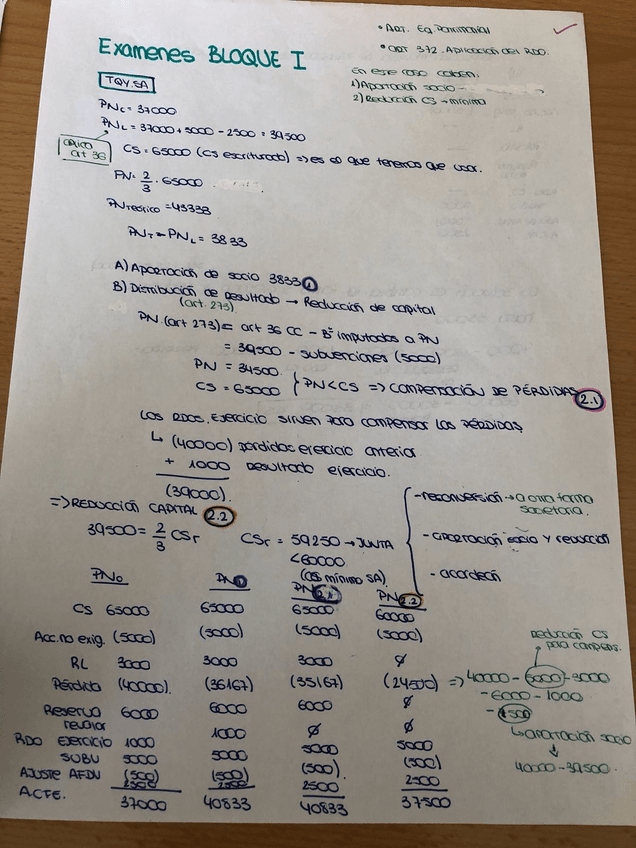 • ART. Eq. Patrimonial
• ART 372. Aplicación del RDO.
Examenes BLOQUE I
En este caso caben:
1) Aportación socio -
2) Reducción CS → mínimo
TQY.SA
PNc = 37000
PNL = 37000 + 5000 - 2500 = 39500
art 36
CS = 65000 (CS escriturado) => es el que tenemos que usar.
PN = 2/3 · 65000
PNTeórico = 43333
PNT - PNL = 3833
A) Aportación de socio 3833 1
B) Distribución de resultado → Reducción de capital
(art. 273)
PN (art 273) = art 36 CC - Bº imputados a PN
= 39500 - subvenciones (5000)
PN = 34500
CS = 65000 } PN < CS => COMPENSACIÓN DE PÉRDIDAS 2.1
LOS RDOS. EJERCICIO SIRVEN PARA COMPENSAR LAS PÉRDIDAS
↳ (40000) pérdidas ejercicio anterior
+ 1000 resultado ejercicio.
(39000).
=> REDUCCIÓN CAPITAL 2.2
39500 = 2/3 CSr
CSr = 59250 → JUNTA
< 60000
(CS mínimo SA)
- reconversión → a otra forma societaria.
- aportación socio y reducción
- acordeón
PN0 PN1 PN2.1 PN2.2
CS 65000 65000 65000 60000
Acc. no exig. (5000) (5000) (5000) (5000)
RL 3000 3000 3000 ∅
Pérdida (40000). (36167) (35167) (24500) => 40000 - 5000 - 3000
- 6000 - 1000
- 1500
Reserva 6000 6000 6000 ∅
RDO EJERCICIO 1000 1000 ∅ ∅
SUBV 5000 5000 5000 5000
AJUSTE AFDV (500) (500) (500). (500)
ACFE. 2500 2500 2500 2500
37000 40833 40833 37500
Reducción CS
para compens.
↳ aportación socio
↓
40000 - 39500.